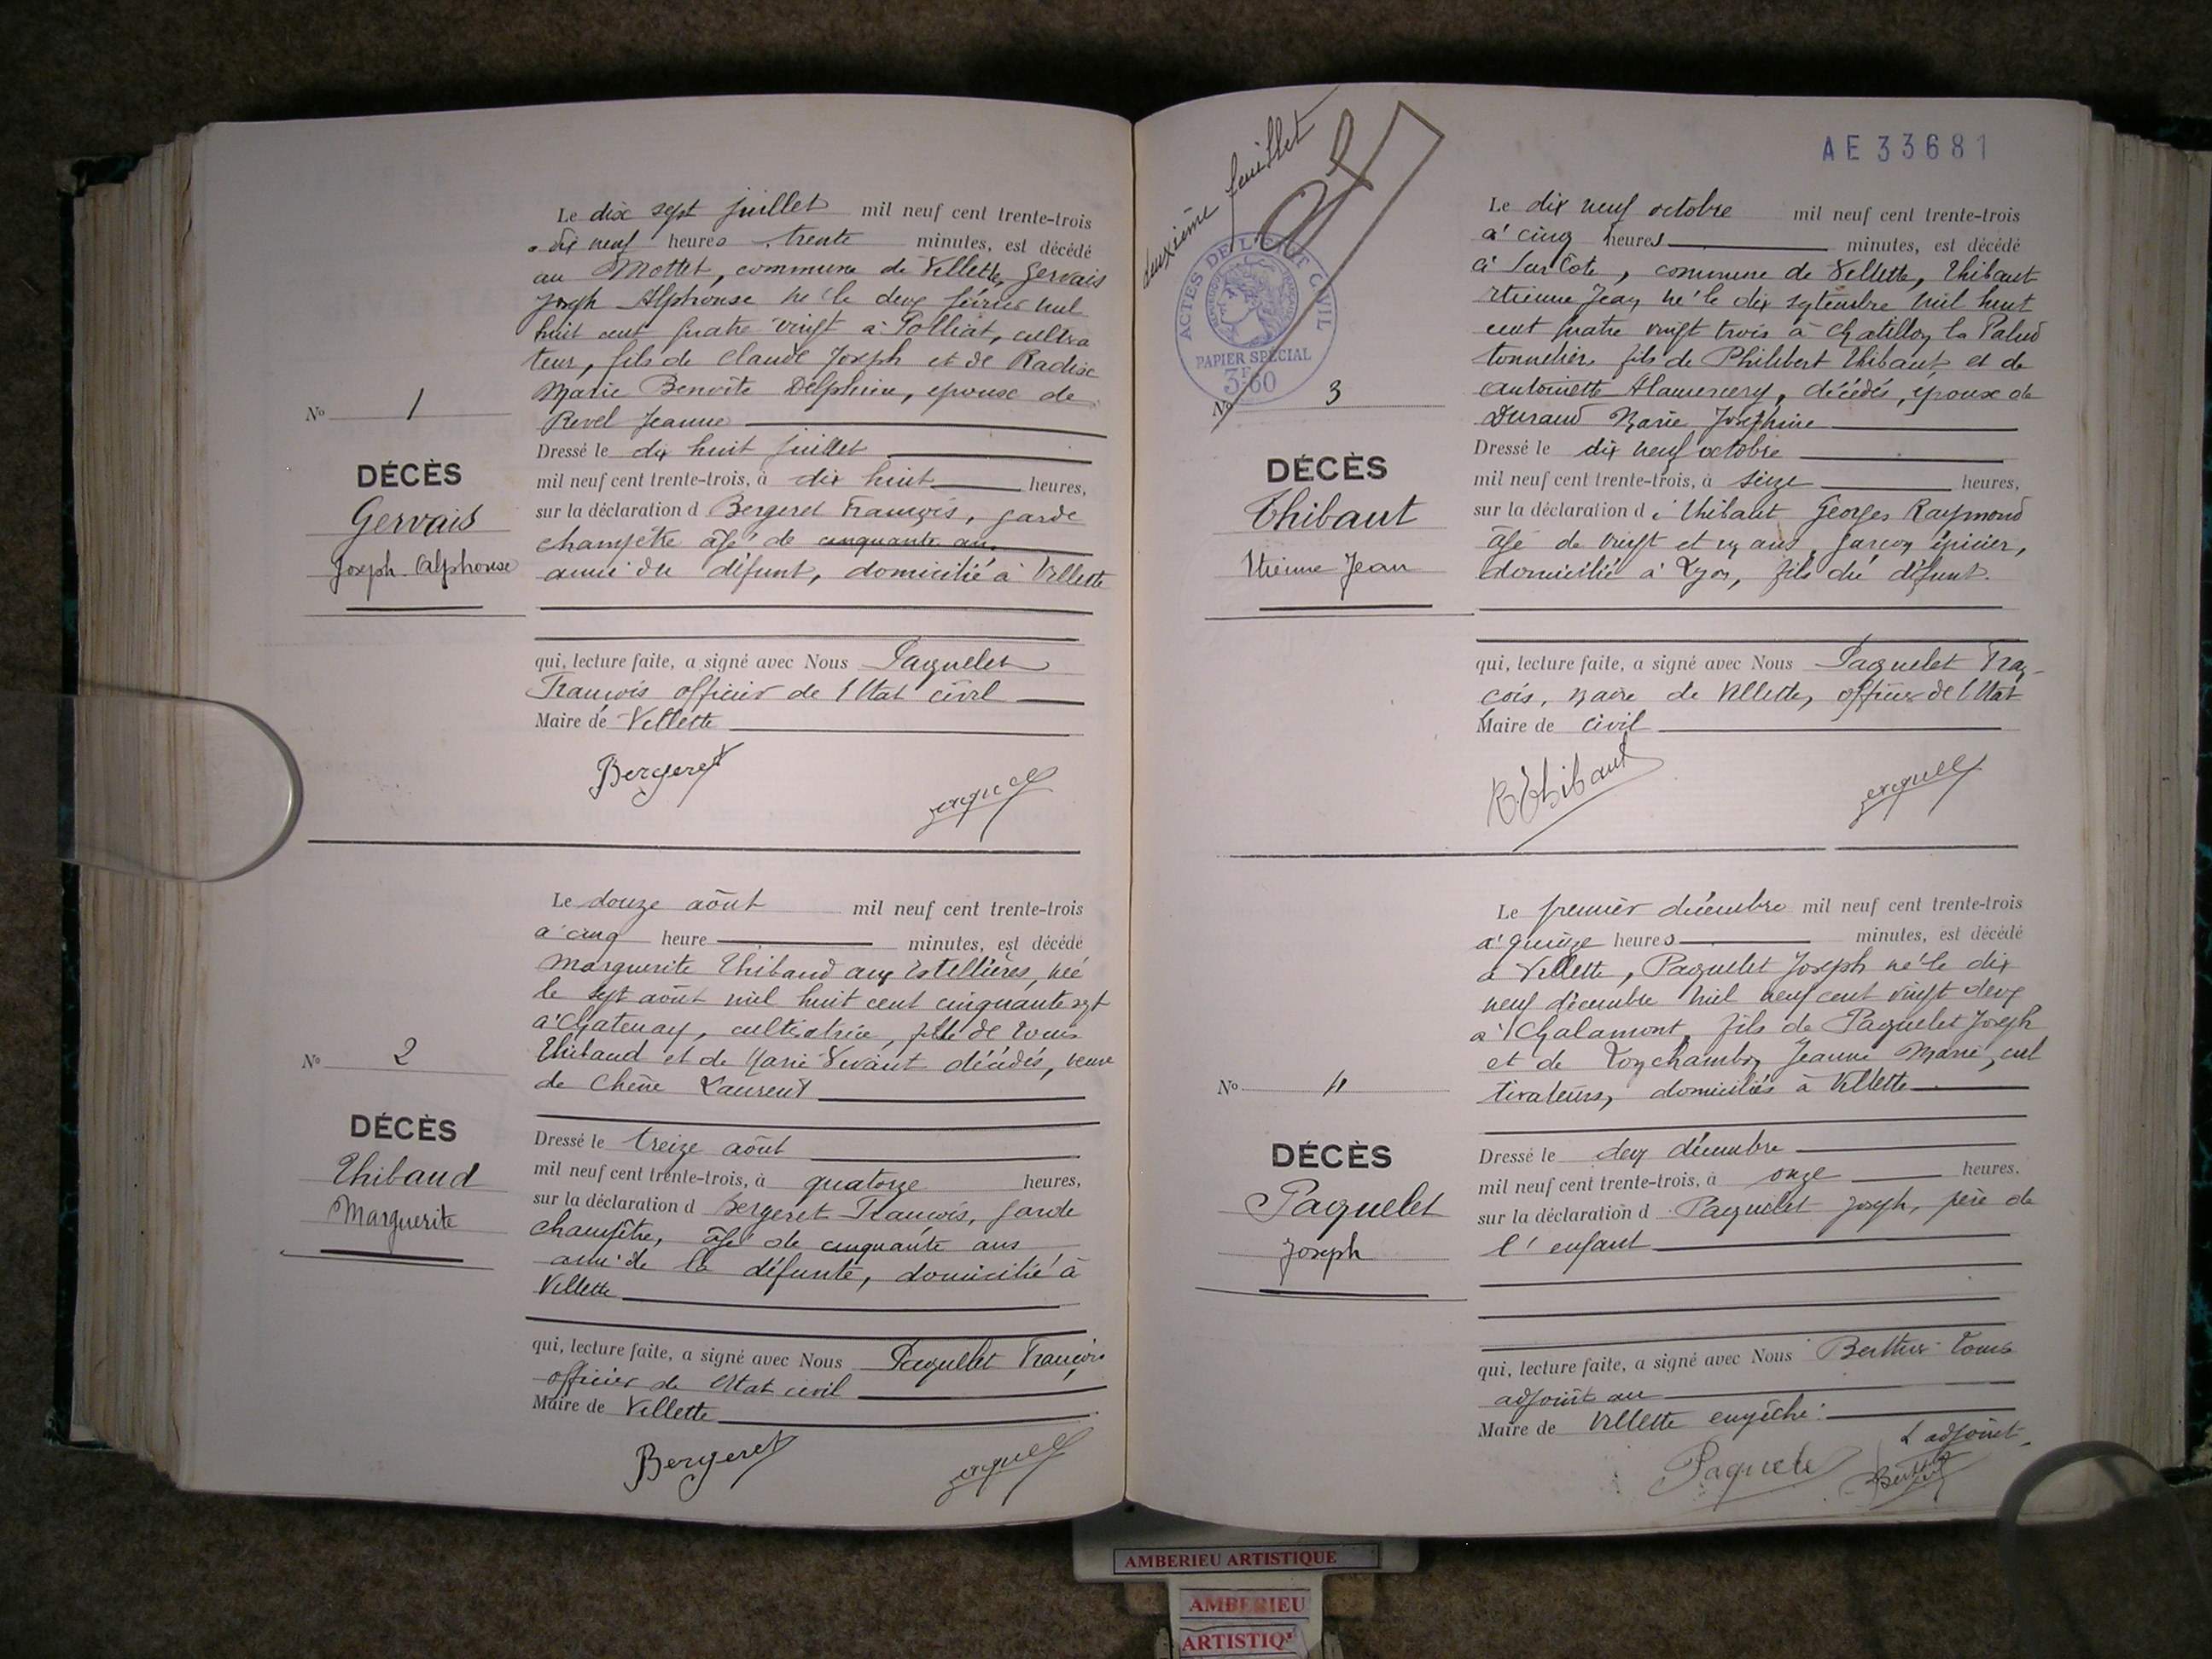 Le dix sept juillet mil neuf cent trente-trois
à dix neuf heures trente minutes, est décédé
au Mottet, commune de Villette, Gervais
Joseph Alphonse né le deux février mil
huit cent quatre vingt à Polliat, cultiva
teur, fils de Claude Joseph et de Radix
Marie Benoîte Delphine, epoux de
Revel Jeanne
Dressé le dix huit juillet
mil neuf cent trente-trois, à dix huit heures,
sur la déclaration d Bergeret François, garde
champêtre âgé de cinquante ans
ami du défunt, domicilié à Villette
qui, lecture faite, a signé avec Nous Paquelet
François officier de l'Etat civil
Maire de Villette
Bergeret
No 1
DÉCÈS
Gervais
Joseph Alphonse
Le douze août mil neuf cent trente-trois
à cinq heure minutes, est décédé
Marguerite Thibaud aux Estellières, née
le sept août mil huit cent cinquante sept
à Chatenay, cultivatrice, fille de Louis
Thibaud et de Marie Vivant décédés, veuve
de Chêne Laurent
Dressé le treize août
mil neuf cent trente-trois, à quatorze heures,
sur la déclaration d Bergeret François, garde
champêtre, âgé de cinquante ans
ami de la défunte, domicilié à
Villette
qui, lecture faite, a signé avec Nous Paquelet François
officier de Etat civil
Maire de Villette
Bergeret
No 2
DÉCÈS
Thibaud
Marguerite
deuxième feuillet
AE 33681
ACTES DE L'ETAT CIVIL
PAPIER SPÉCIAL
3F.60
Le dix neuf octobre mil neuf cent trente-trois
à cinq heures minutes, est décédé
à Sur Cote, commune de Villette, Thibaut
Etienne Jean né le dix septembre mil huit
cent quatre vingt trois à Chatillon la Palud
tonnelier, fils de Philibert Thibaut et de
Antoinette, décédés, époux de
Durand Marie Joséphine
Dressé le dix neuf octobre
mil neuf cent trente-trois, à seize heures,
sur la déclaration d e Thibaut Georges Raymond
âgé de vingt et un ans, garçon épicier,
domicilié à Lyon, fils du défunt.
qui, lecture faite, a signé avec Nous Paquelet Fran-
çois, maire de Villette, officier de l'Etat
Maire de civil
R Thibaut
No 3
DÉCÈS
Thibaut
Etienne Jean
Le premier décembre mil neuf cent trente-trois
à quinze heures minutes, est décédé
à Villette, Paquelet Joseph né le dix
neuf décembre mil neuf cent vingt deux
à Chalamont, fils de Paquelet Joseph
et de Lonchambon Jeanne Marie, cul
tivateurs, domiciliés à Villette
Dressé le deux décembre
mil neuf cent trente-trois, à onze heures.
sur la déclaration d Paquelet Joseph, père de
l'enfant
qui, lecture faite, a signé avec Nous Berthier Louis
adjoint au
Maire de Villette empêché.
L'adjoint
Paquelet
No 4
DÉCÈS
Paquelet
Joseph
AMBERIEU ARTISTIQUE
AMBERIEU
ARTISTIQ